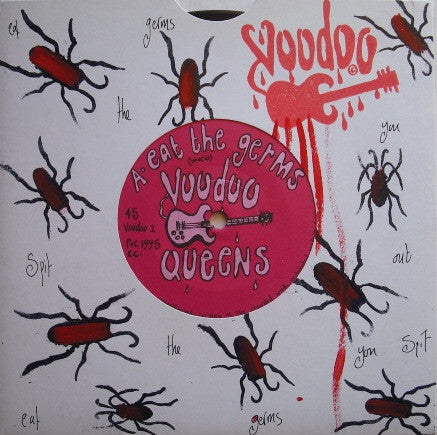 eat germs
Voodoo
the
you
A· eat the germs
Voodoo
QUEENS
45
Voodoo 2
P+C 1995
CC.
Spit out
the you Spit
eat germs